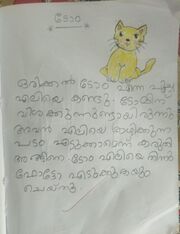 ടോറ
ഒരിക്കൽ ടോറ എന്ന പൂച്ച
എലിയെ കണ്ടു. ടോറയ്ക്ക്
വിശക്കുന്നുണ്ടായിരുന്നു
അവൻ എലിയെ
ഫോട്ടം എടുക്കാമെന്ന് കരുതി
അങ്ങനെ ടോറ എലിയെ നിർത്തി
ഫോട്ടോ എടുക്കുകയും
ചെയ്തു.